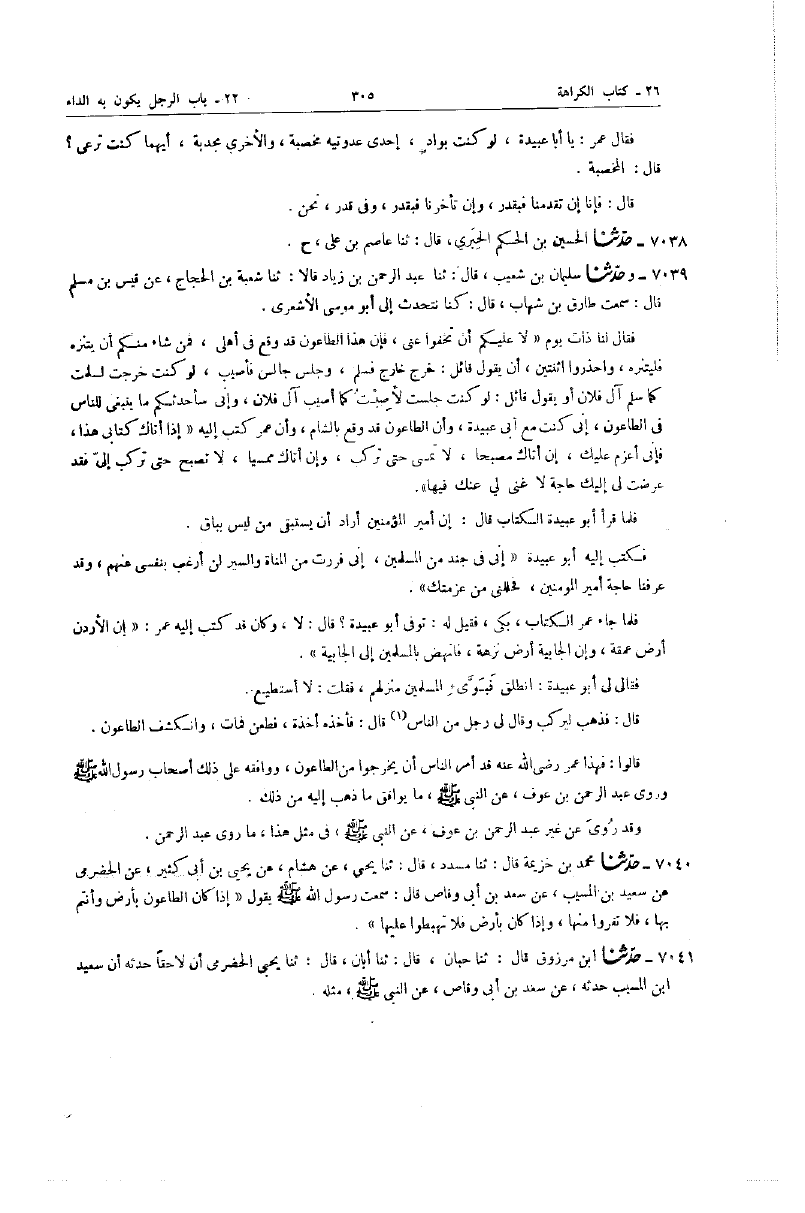 ٢٦ - كتاب الكراهة ٣٠٥ ٢٢ - باب الرجل يكون به الداء
فقال عمر : يا أبا عبيدة ، لو كنت بوادٍ ، إحدى عدوتيه مخصبة ، والأخرى مجدبة ، أيهما كنت ترعى ؟
قال : المخصبة .
قال : فإنا إن تقدمنا فبقدر ، وإن تأخرنا فبقدر ، وفى قدر ، نحن .
٧٠٣٨ - حدّثنا الحسين بن الحكم الحِبَرِي، قال : ثنا عاصم بن على ، ح .
٧٠٣٩ - وحدّثنا سليمان بن شعيب ، قال : ثنا عبد الرحمن بن زياد قالا : ثنا شعبة بن الحجاج ، عن قيس بن مسلم
قال : سمعت طارق بن شهاب ، قال : كنا نتحدث إلى أبو موسى الأشعرى .
فقال لنا ذات يوم « لا عليكم أن تخفوا عنى ، فإن هذا الطاعون قد وقع فى أهلى ، فمن شاء منكم أن يتنزه
فليتنزه ، واحذروا اثنتين ، أن يقول قائل : خرج خارج فسلم ، وجلس جالس فأصيب ، لو كنت خرجت لسلمت
كما سلم آل فلان أو يقول قائل : لو كنت جلست لأُصِبْتُ كما أصيب آل فلان ، وإنى سأحدثكم ما ينبغى للناس
فى الطاعون ، إنى كنت مع أبى عبيدة ، وأن الطاعون قد وقع بالشام ، وأن عمر كتب إليه « إذا أتاك كتابى هذا ،
فإنى أعزم عليك ، إن أتاك مصبحا ، لا تمسى حتى تركب ، وإن أتاك ممسيا ، لا تصبح حتى تركب إلىّ فقد
عرضت لى إليك حاجة لا غنى لي عنك فيها».
فلما قرأ أبو عبيدة الكتاب قال : إن أمير المؤمنين أراد أن يستبقى من ليس بباق .
فكتب إليه أبو عبيدة « إنى فى جند من المسلمين ، إنى فررت من المناة والسير لن أرغب بنفسى عنهم ، وقد
عرفنا حاجة أمير المومنين ، فحللنى من عزمتك» .
فلما جاء عمر الكتاب ، بكى ، فقيل له : توفى أبو عبيدة ؟ قال : لا ، وكان قد كتب إليه عمر : « إن الأردن
أرض عمقة ، وإن الجابية أرض نزهة ، فانهض بالمسلمين إلى الجابية » .
فقالى لى أبو عبيدة : انطلق فَبَوِّىء المسلمين منزلهم ، فقلت : لا أستطيع .
قال : فذهب ليركب وقال لى رجل من الناس(١) قال : فأخذه أخذة ، فطعن فمات ، وانكشف الطاعون .
قالوا : فهذا عمر رضى الله عنه قد أمر الناس أن يخرجوا من الطاعون ، ووافقه على ذلك أصحاب رسول الله ﷺ
وروى عبد الرحمن بن عوف ، عن النبى ﷺ ، ما يوافق ما ذهب إليه من ذلك .
وقد رُوِىَ عن غير عبد الرحمن بن عوف ، عن النبى ﷺ ، فى مثل هذا ، ما روى عبد الرحمن .
٧٠٤٠ - حدّثنا محمد بن خزيمة قال : ثنا مسدد ، قال : ثنا يحيى ، عن هشام ، عن يحيى بن أبى كثير ، عن الحضرمى
عن سعيد بن المسيب ، عن سعد بن أبى وقاص قال : سمعت رسول الله ﷺ يقول « إذا كان الطاعون بأرض وأنتم
بها ، فلا تفروا منها ، وإذا كان بأرض فلا تهبطوا عليها » .
٧٠٤١ - حدّثنا ابن مرزوق قال : ثنا حبان ، قال : ثنا أبان ، قال : ثنا يحيى الحضرمى أن لاحقاً حدثه أن سعيد
ابن المسيب حدثه ، عن سعد بن أبى وقاص ، عن النبى ﷺ ، مثله .